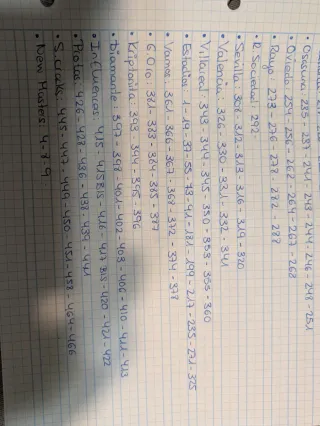 Osasuna 235 - 237 - 241 - 242 - 244 - 246 - 248 - 251
• Oviedo 254 - 256 - 262 - 264 - 267 - 268
• Rayo 273 - 276 - 278 - 282 - 288
• R. Sociedad 292
• Sevilla 308 - 312 - 313 - 316 - 319 - 320
• Valencia 326 - 330 - 331 - 332 - 341
• Villareal 343 - 344 - 345 - 350 - 353 - 355 - 360
• Estadios 1 - 19 - 37 - 55 - 73 - 91 - 181 - 199 - 217 - 235 - 271 - 325
• Vamos 361 - 366 - 367 - 368 - 372 - 374 - 378
• G. Oro: 381 - 383 - 384 - 385 - 387
• Kriptonita 393 - 394 - 395 - 396
• Diamante 397 - 398 - 401 - 402 - 403 - 406 - 410 - 411 - 413
• Influencers: 415 - 415 BIS - 416 - 417 BIS - 420 - 421 - 422
• Protas: 426 - 428 - 436 - 437 - 439 - 441
• S. cracks: 445 - 447 - 449 - 450 - 451 - 458 - 464 - 466
• New Masters 4 - 8 - 9